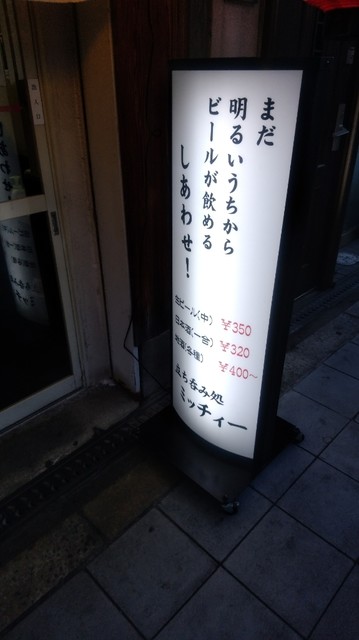 まだ
明るいうちから
ビールが飲める
しあわせ!
生ビール(中) ¥350
日本酒(一合) ¥320
(各種) ¥400～
立ち呑み処
ミッチィー